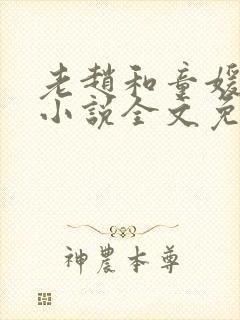 老趙和童媛
小說全文免
神農本尊